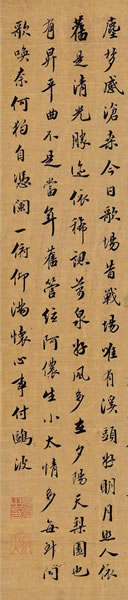 塵夢感滄桑今日歌場昔戰場唯有溪頭好明月照人依
舊是清光勝迹依稀認萬泉好風多在夕陽天梨園也
有昇平曲不是當年舊管弦阿儂生小太情多每
歌喚奈何自憑闌一俯仰滿懷心事付鷗波